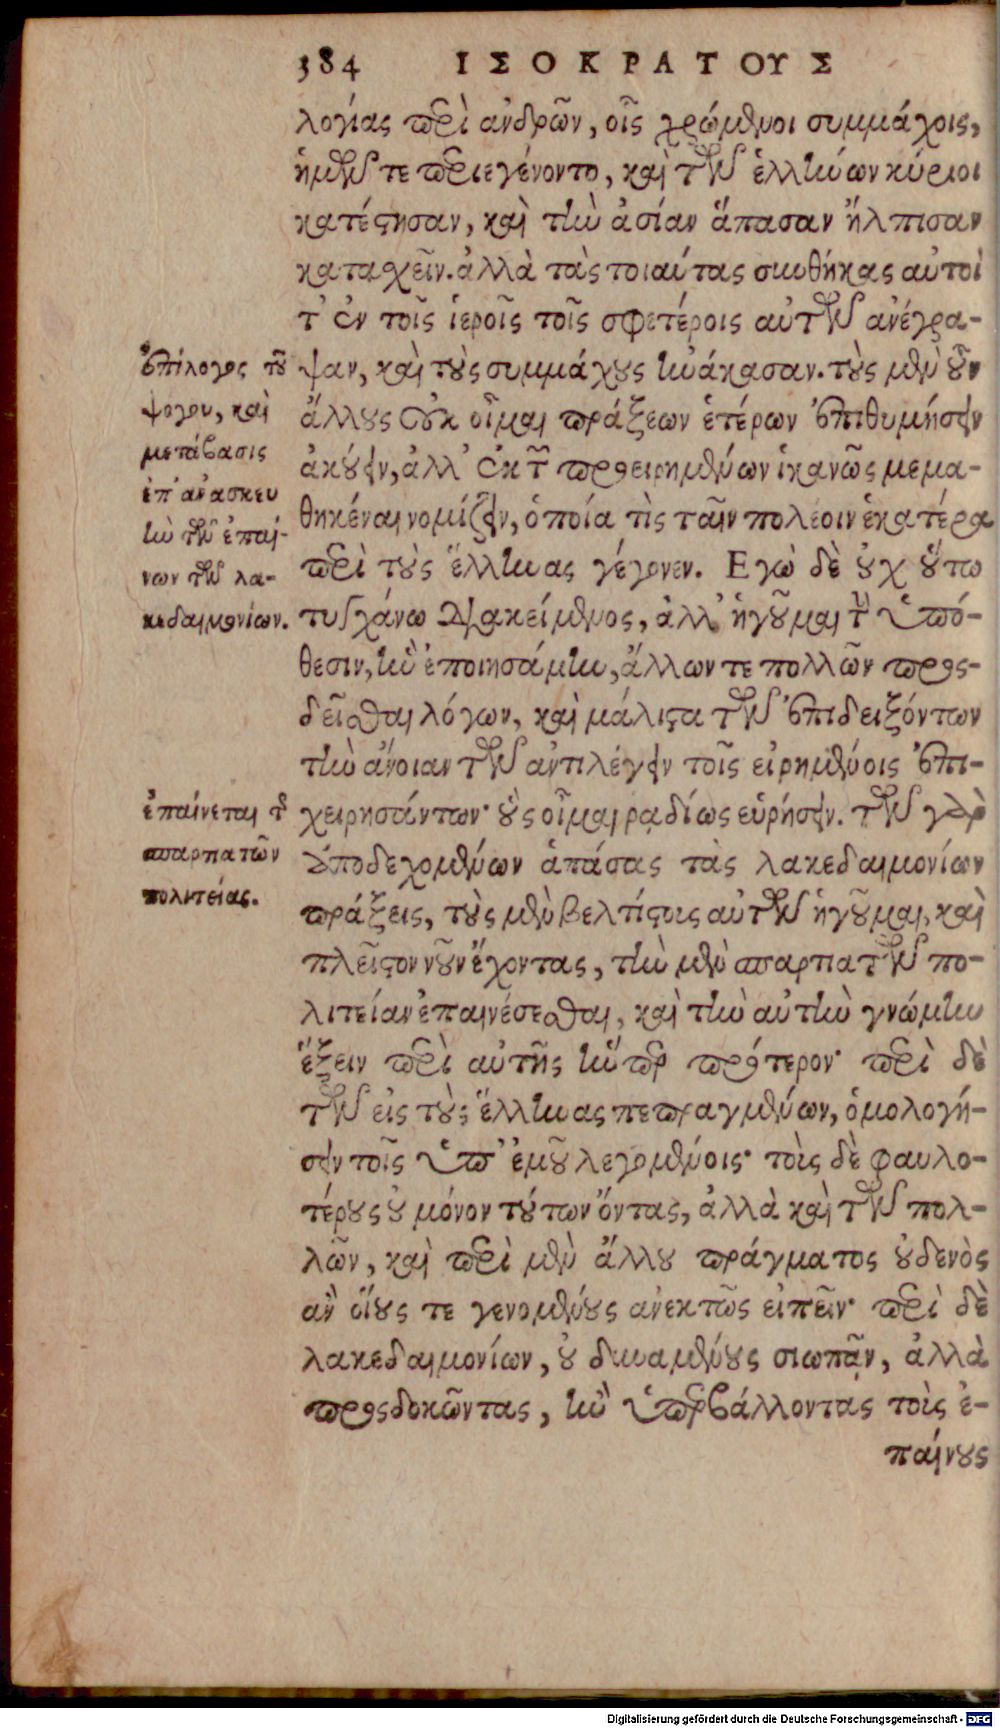 384 ΙΣΟΚΡΑΤΟΥΣ
λογίας περὶ ἀνδρῶν, οἷς χρώμενοι συμμάχοις,
ἡμῶν τε περιεγένοντο, καὶ τῶν ἑλλήνων κύριοι
κατέστησαν, καὶ τὴν ἀσίαν ἅπασαν ἤλπισαν
κατασχεῖν. ἀλλὰ τὰς τοιαύτας συνθήκας αὐτοί
τ' ἐν τοῖς ἱεροῖς τοῖς σφετέροις αὐτῶν ἀνέγρα-
ψαν, καὶ τοὺς συμμάχους ἠνάκασαν. τοὺς μὲν οὖν
ἄλλους οὐκ οἶμαι πράξεων ἑτέρων ἐπιθυμήσειν
ἀκούειν, ἀλλ' ἐκ τῶν προειρημένων ἱκανῶς μεμα-
θηκέναι νομίζειν, ὁποία τὶς ταῖν πολέοιν ἑκατέρα
περὶ τοὺς ἕλληνας γέγονεν. Εγὼ δὲ οὐχ οὕτω
τυγχάνω διακείμενος, ἀλλ' ἡγοῦμαι τὴν ὑπό-
θεσιν, ἣν ἐποιησάμην, ἄλλων τε πολλῶν προς-
δεῖσθαι λόγων, καὶ μάλιστα τῶν ἐπιδειξόντων
τὴν ἄνοιαν τῶν ἀντιλέγειν τοῖς εἰρημένοις ἐπι-
χειρησάντων· οὓς οἶμαι ῥαδίως εὑρήσειν. τῶν γὰρ
ἀποδεχομένων ἁπάσας τὰς λακεδαιμονίων
πράξεις, τοὺς μὲν βελτίστους αὐτῶν ἡγοῦμαι, καὶ
πλεῖστον νοῦν ἔχοντας, τὴν μὲν σπαρτιατῶν πο-
λιτείαν ἐπαινέσεσθαι, καὶ τὴν αὐτὴν γνώμην
ἕξειν περὶ αὐτῆς ἥνπερ πρότερον· περὶ δὲ
τῶν εἰς τοὺς ἕλληνας πεπραγμένων, ὁμολογή-
σειν τοῖς ὑπ' ἐμοῦ λεγομένοις· τοὺς δὲ φαυλο-
τέρους οὐ μόνον τούτων ὄντας, ἀλλὰ καὶ τῶν πολ-
λῶν, καὶ περὶ μὲν ἄλλου πράγματος οὐδενὸς
ἂν οἵους τε γενομένους ἀνεκτῶς εἰπεῖν· περὶ δὲ
λακεδαιμονίων, οὐ δυναμένους σιωπᾷν, ἀλλὰ
προςδοκῶντας, ἢν ὑπερβάλλοντας τοὺς ἐ-
παίνους
ἐπίλογος τοῦ
ψόγου, καὶ
μετάβασις
ἐπ' ἀνασκευ
ὴν τῶν ἐπαί-
νων τῶν λα-
κεδαιμονίων.
ἐπαίνεται τῆς
σπαρτιατῶν
πολιτείας.
Digitalisierung gefördert durch die Deutsche Forschungsgemeinschaft - DFG